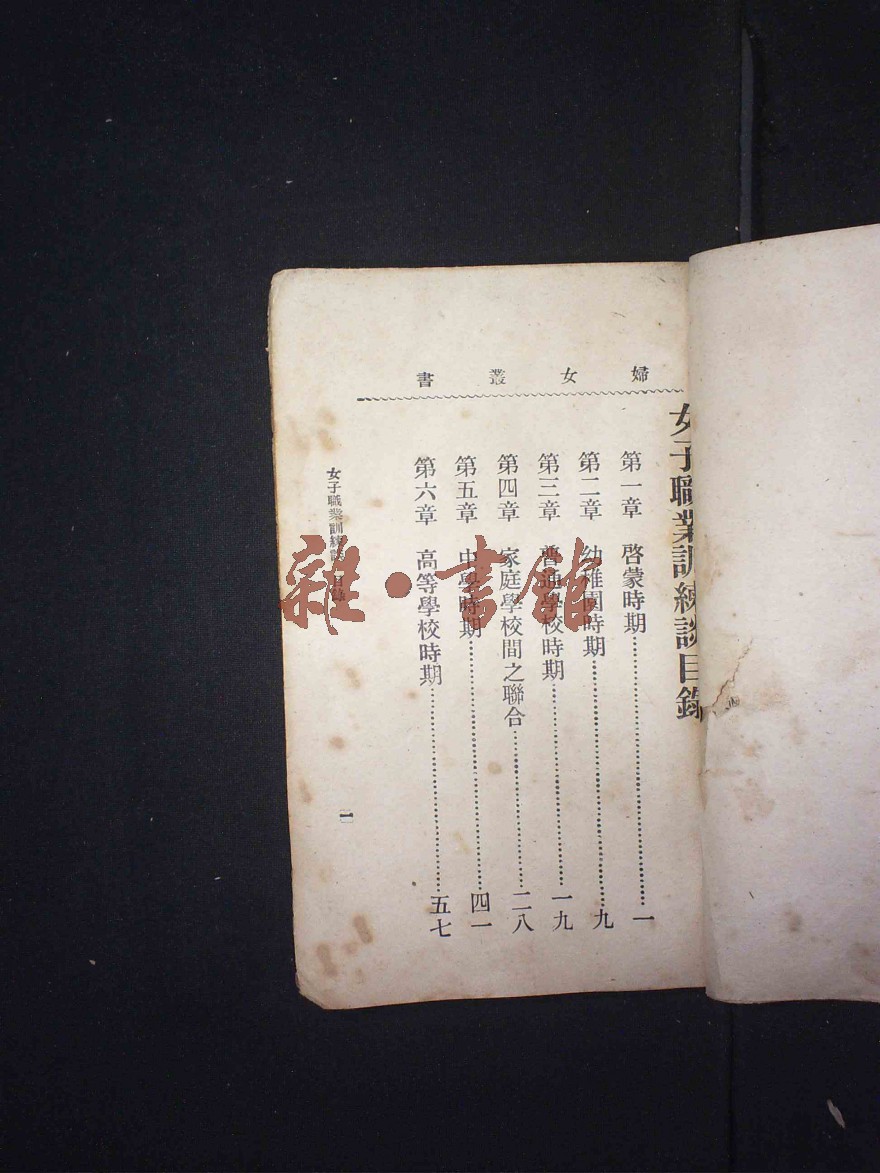 婦女叢書
女子職業訓練談目錄
第一章 啓蒙時期……一
第二章 幼稚園時期……九
第三章 普通學校時期……一九
第四章 家庭學校間之聯合……二八
第五章 中學時期……四一
第六章 高等學校時期……五七
女子職業訓練談 目錄
一
雜·書館